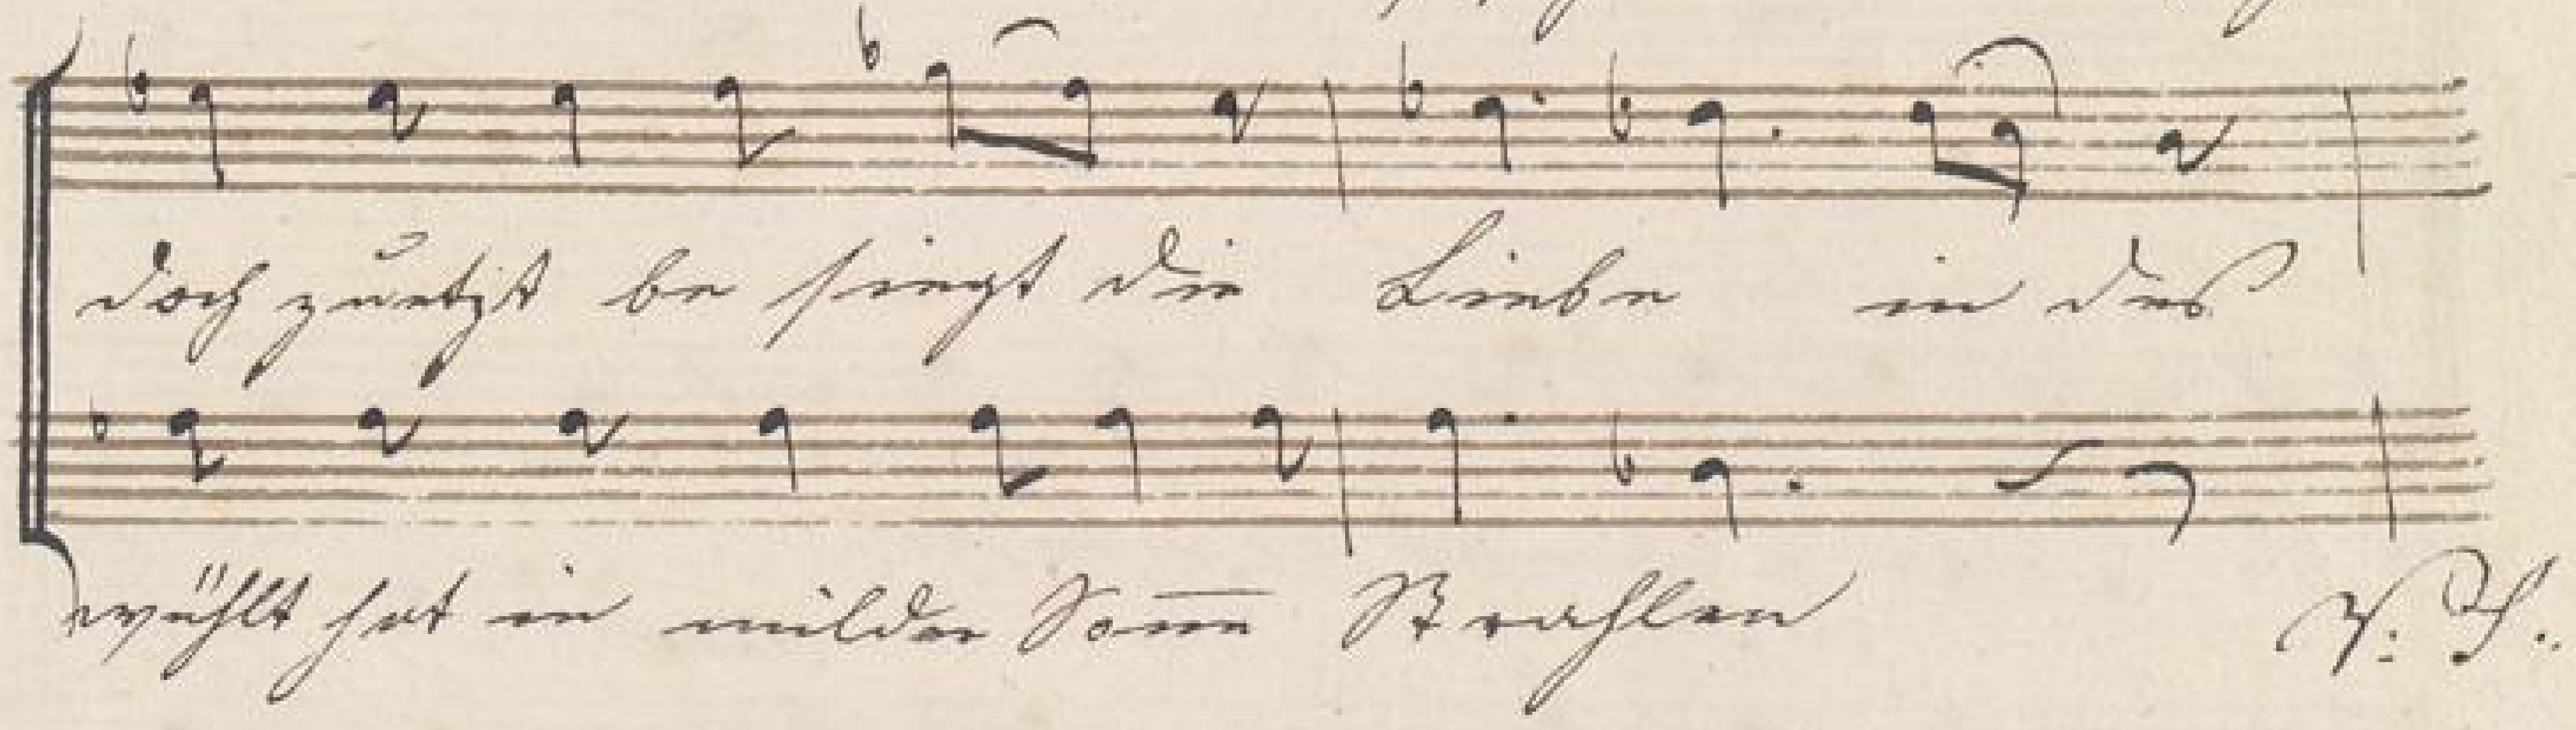 doch zuletzt be siegt die Liebe in des
wühlt hat in milder Son̄e Strahlen V: S: